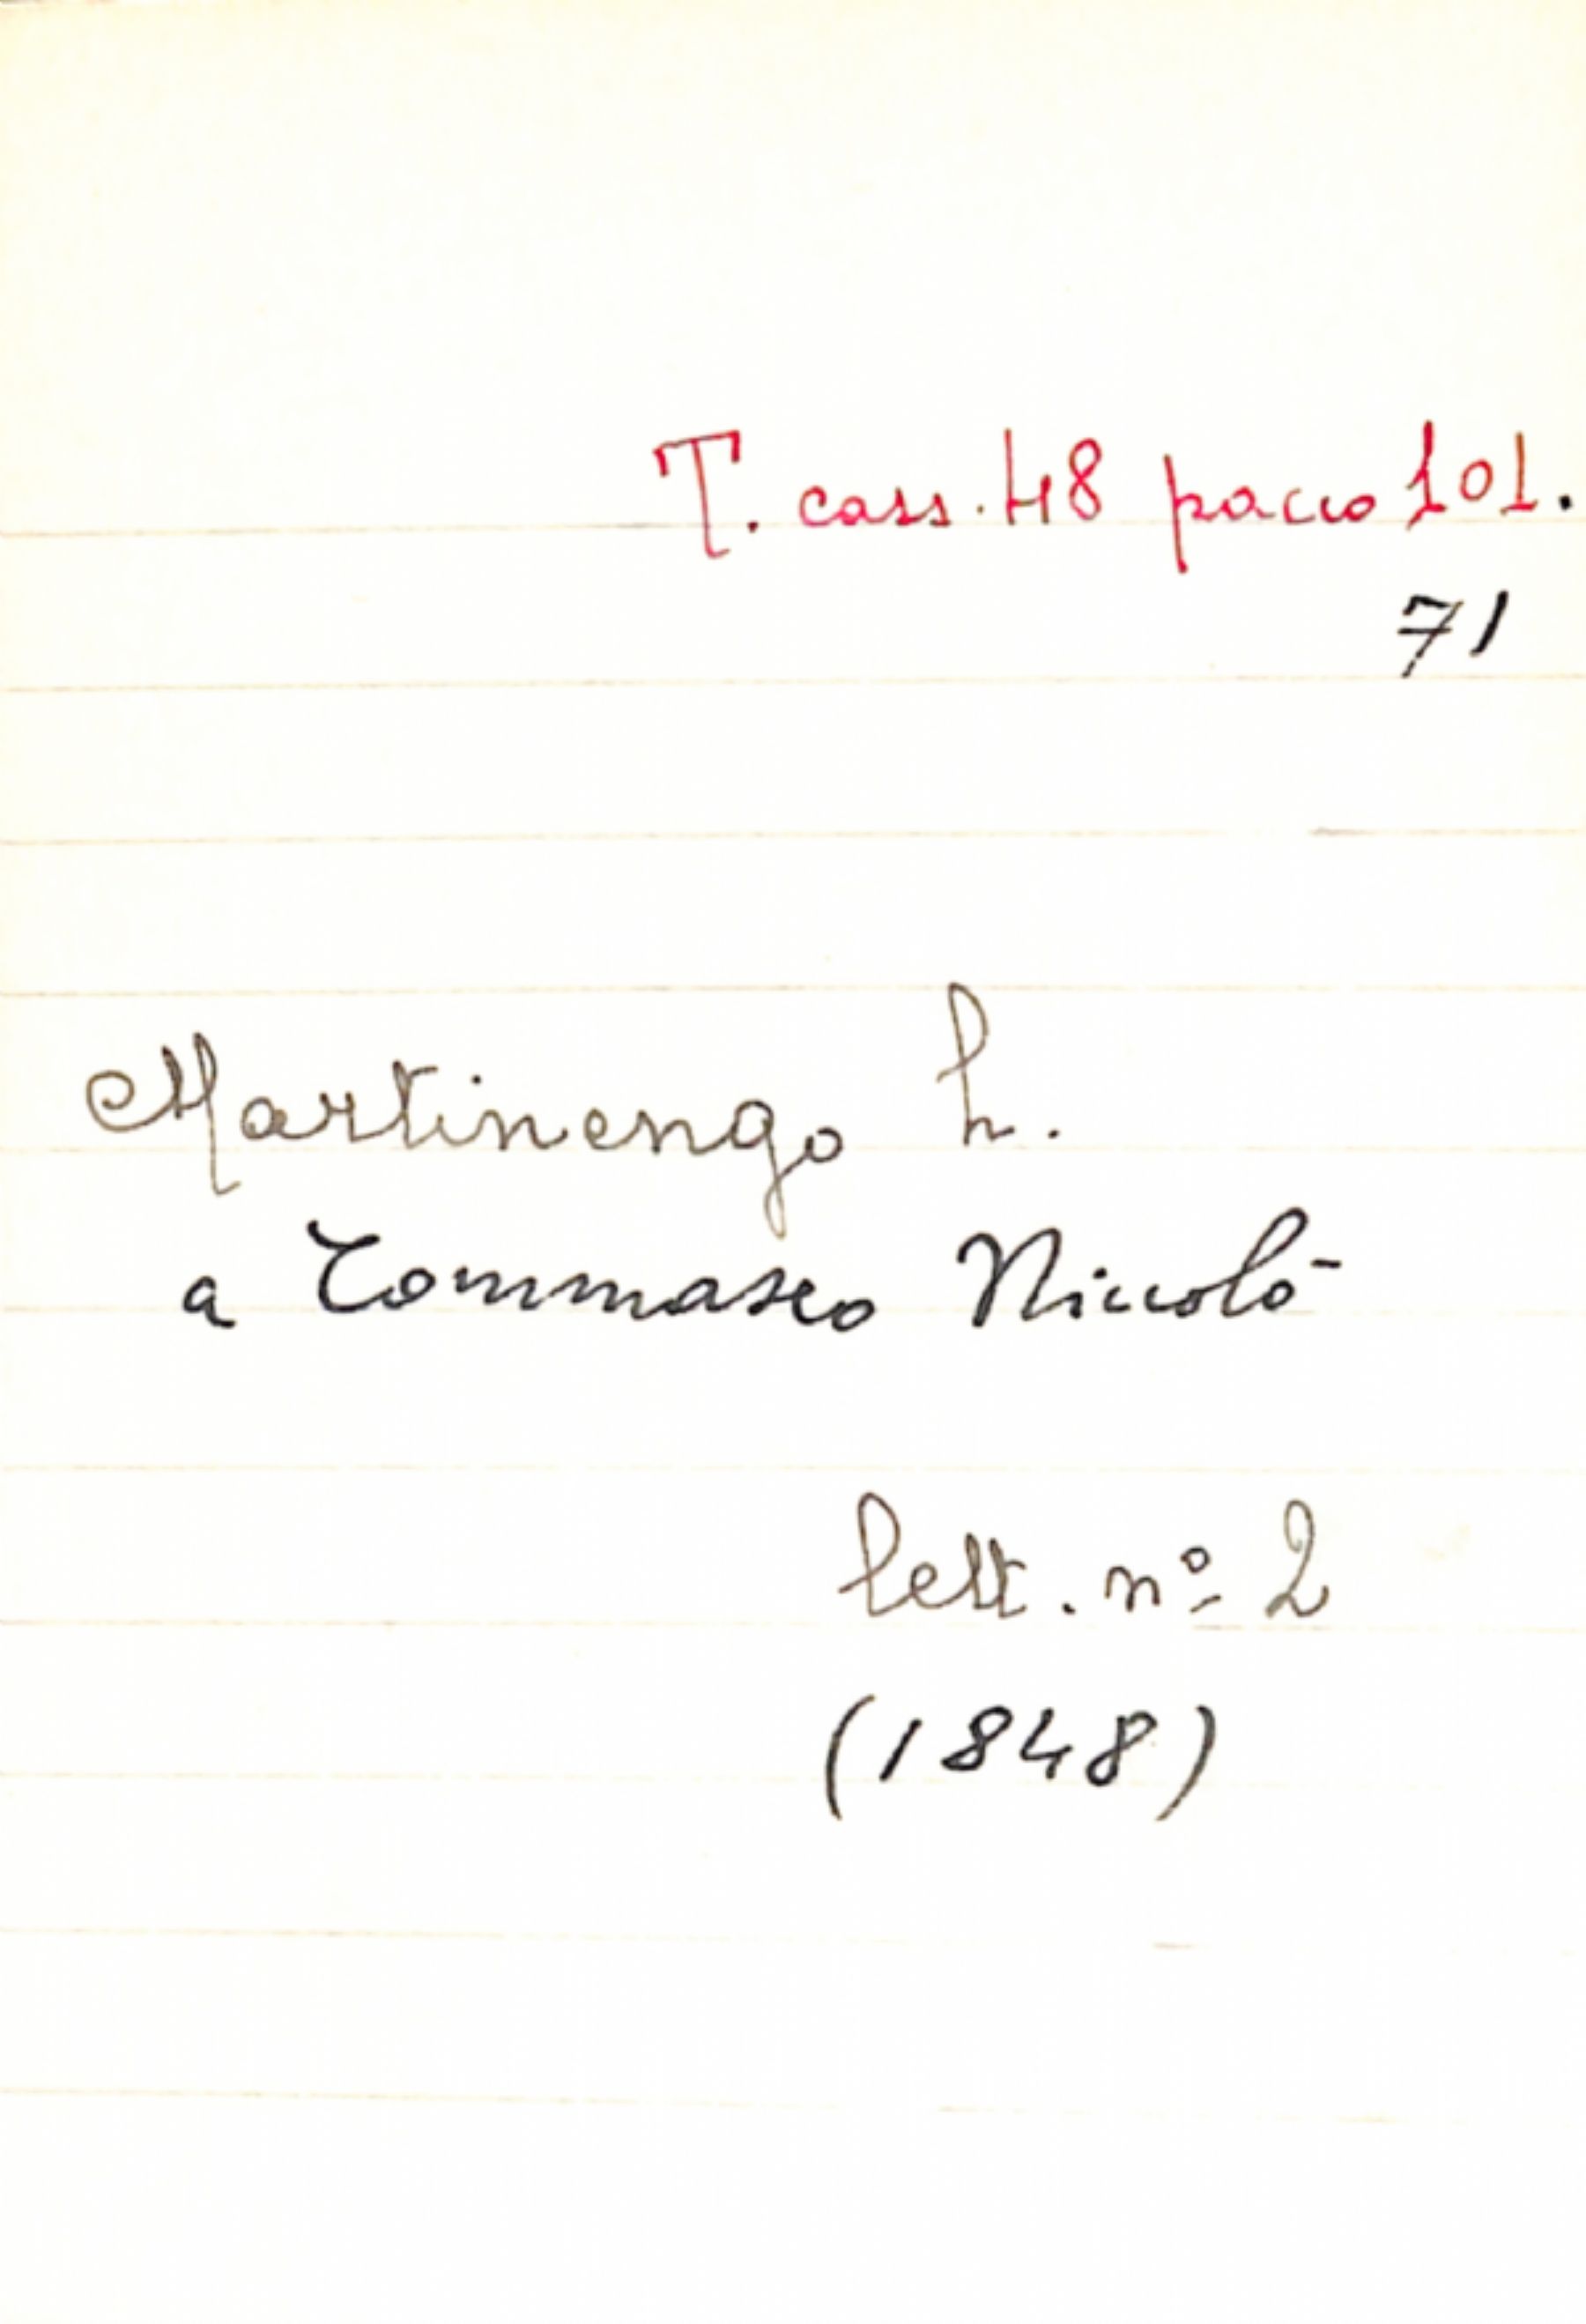 T. cass. 48 pacco 101.
71
Martinengo L.
a Tommaseo Niccolò
lett. nº 2
(1848)